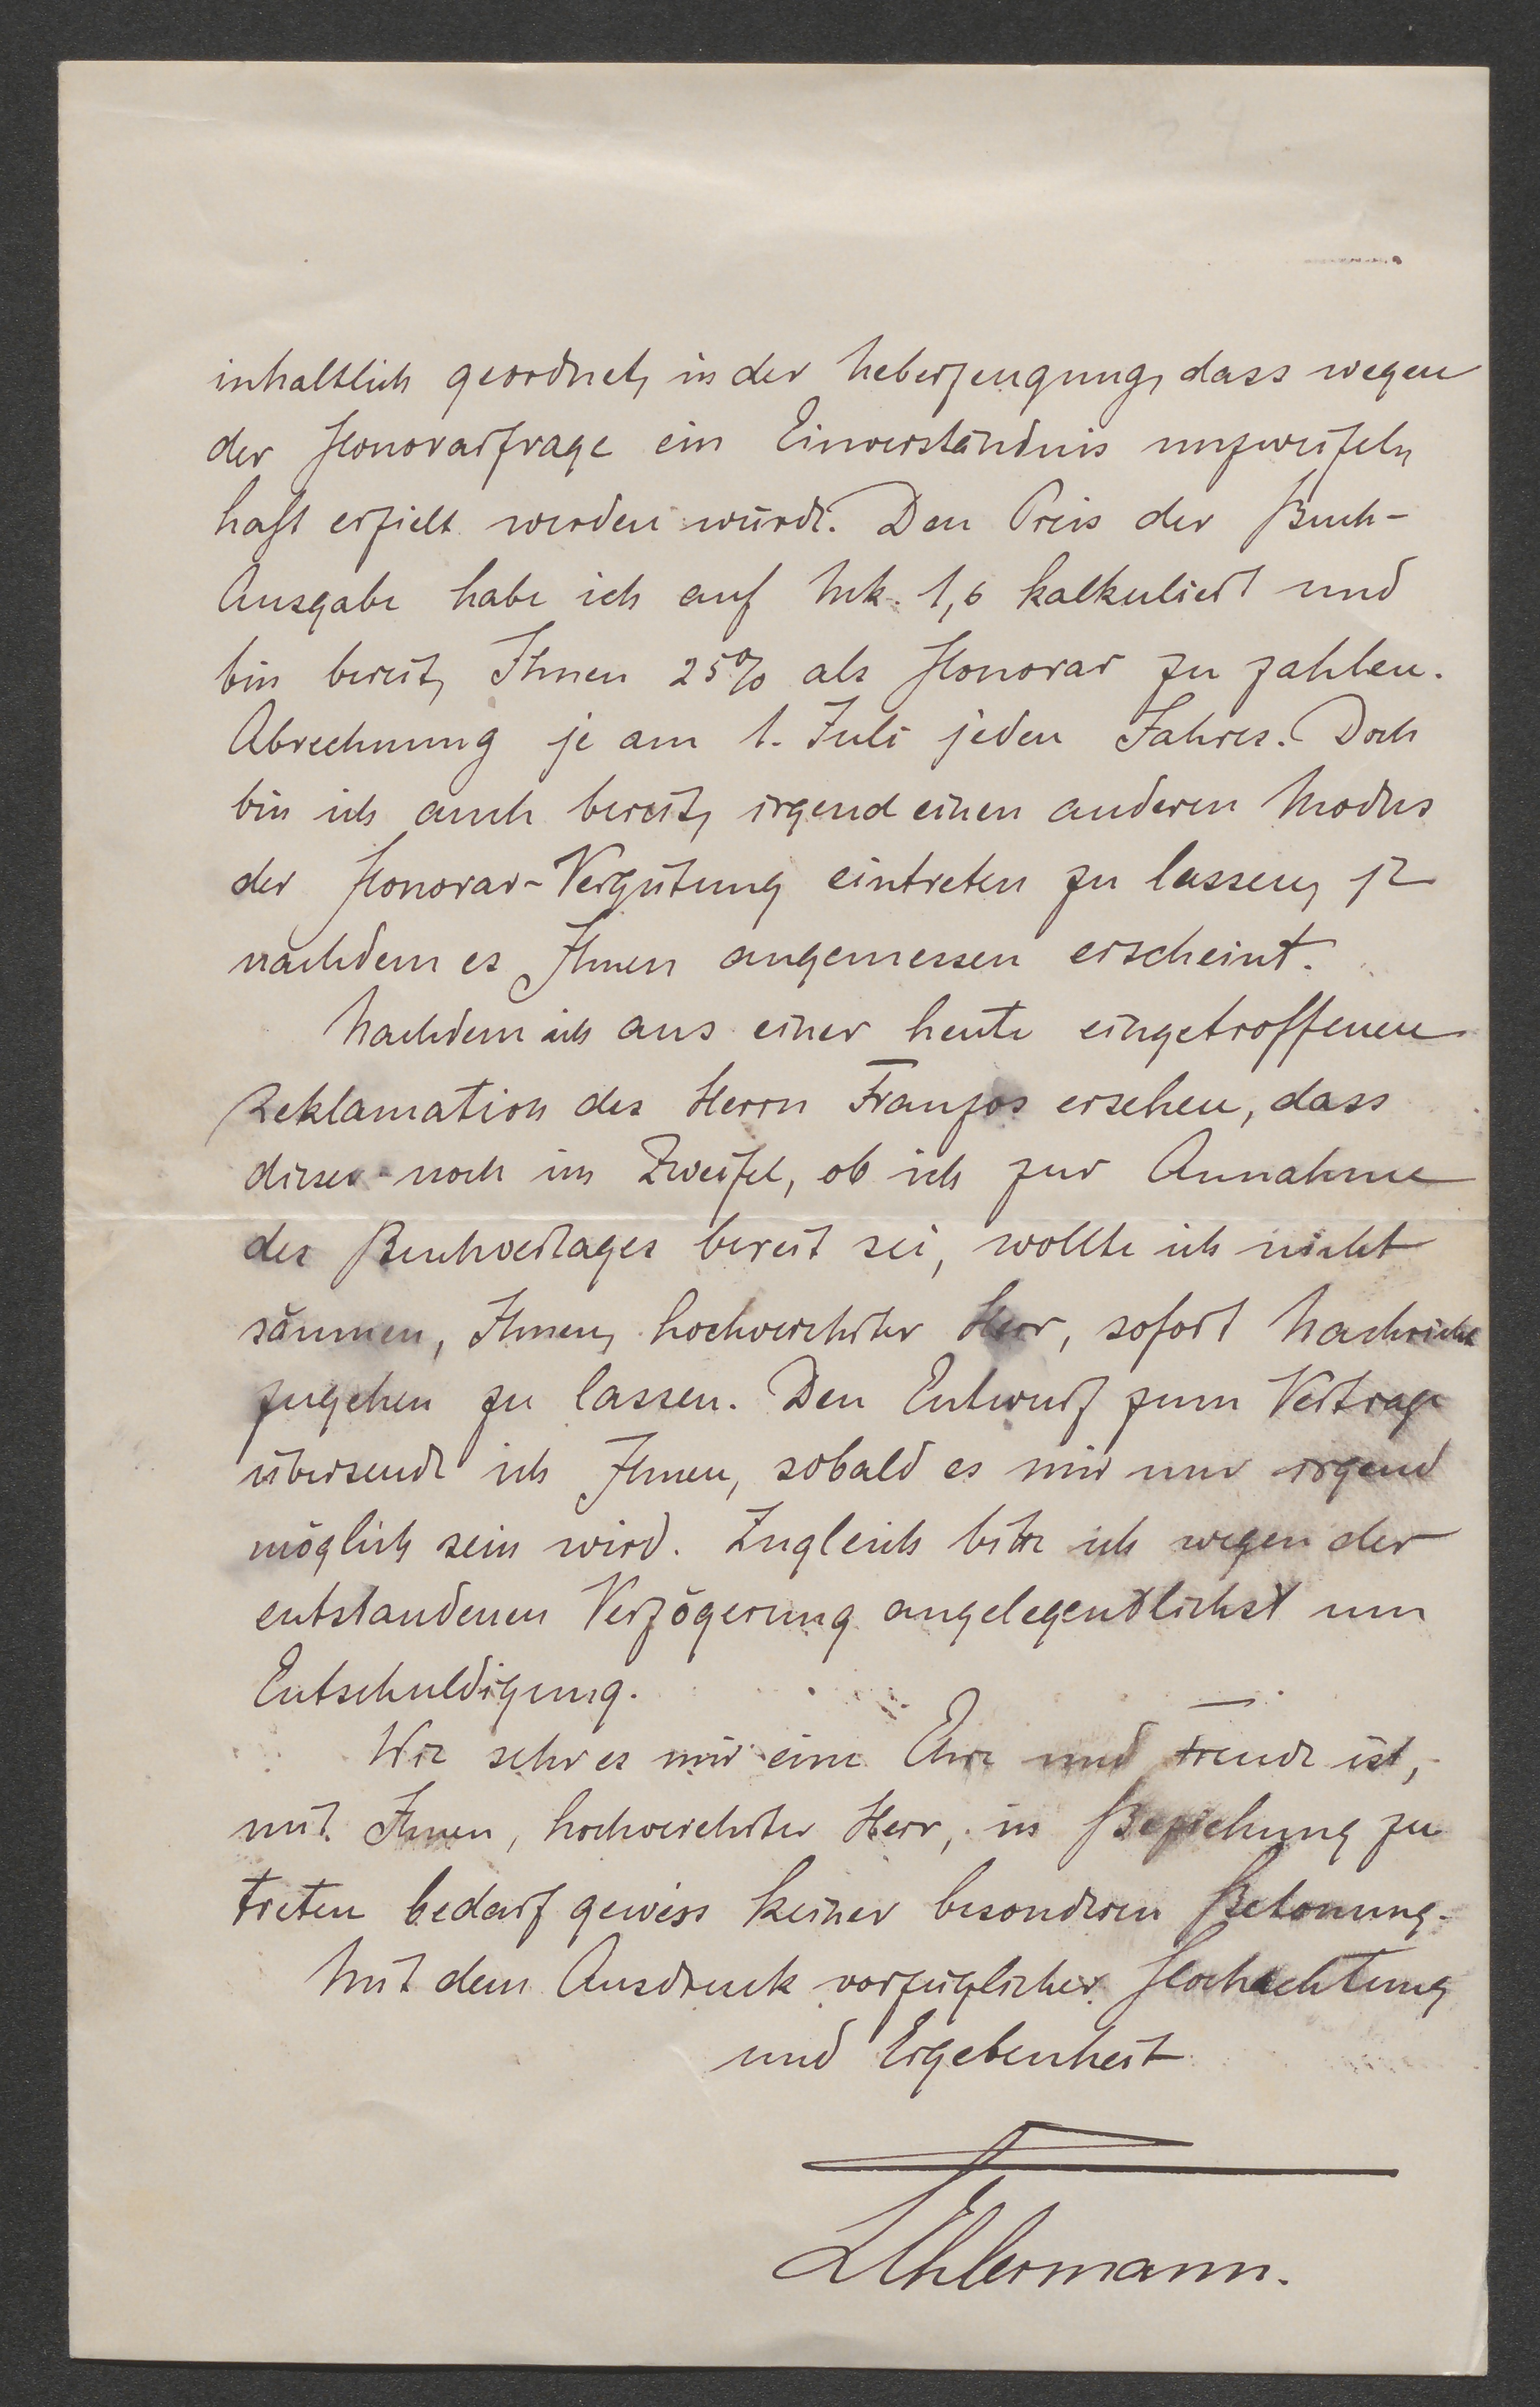 inhaltlich geordnet, in der Ueberzeugung, dass wegen
der Honorarfrage ein Einverständnis unzweifeln
haft erzielt werden würde. Den Preis der Buch-
Ausgabe habe ich auf Mk. 1,6 kalkuliert und
bin bereit, Ihnen 25% als Honorar zu zahlen.
Abrechnung je am 1. Juli jeden Jahres. Doch
bin ich auch bereit, irgend einen anderen Modus
der Honorar-Vergütung eintreten zu lassen, je
nachdem es Ihnen angemessen erscheint.
Nachdem ich aus einer heute eingetroffenen
Reklamation des Herrn Franzos ersehen, dass
dieser noch im Zweifel, ob ich zur Annahme
des Buchverlages bereit sei, wollte ich nicht
säumen, Ihnen, hochverehrter Herr, sofort Nachricht
zugehen zu lassen. Den Entwurf zum Vertrage
übersende ich Ihnen, sobald es mir nur irgend
möglich sein wird. Zugleich bitte ich wegen der
entstandenen Verzögerung angelegentlichst um
Entschuldigung.
Wie sehr es mir eine Ehre und Freude ist,
mit Ihnen, hochverehrter Herr, in Beziehung zu
treten bedarf gewiss keiner besonderen Betonung.
Mit dem Ausdruck vorzüglicher Hochachtung
und Ergebenheit
LEhlermann.